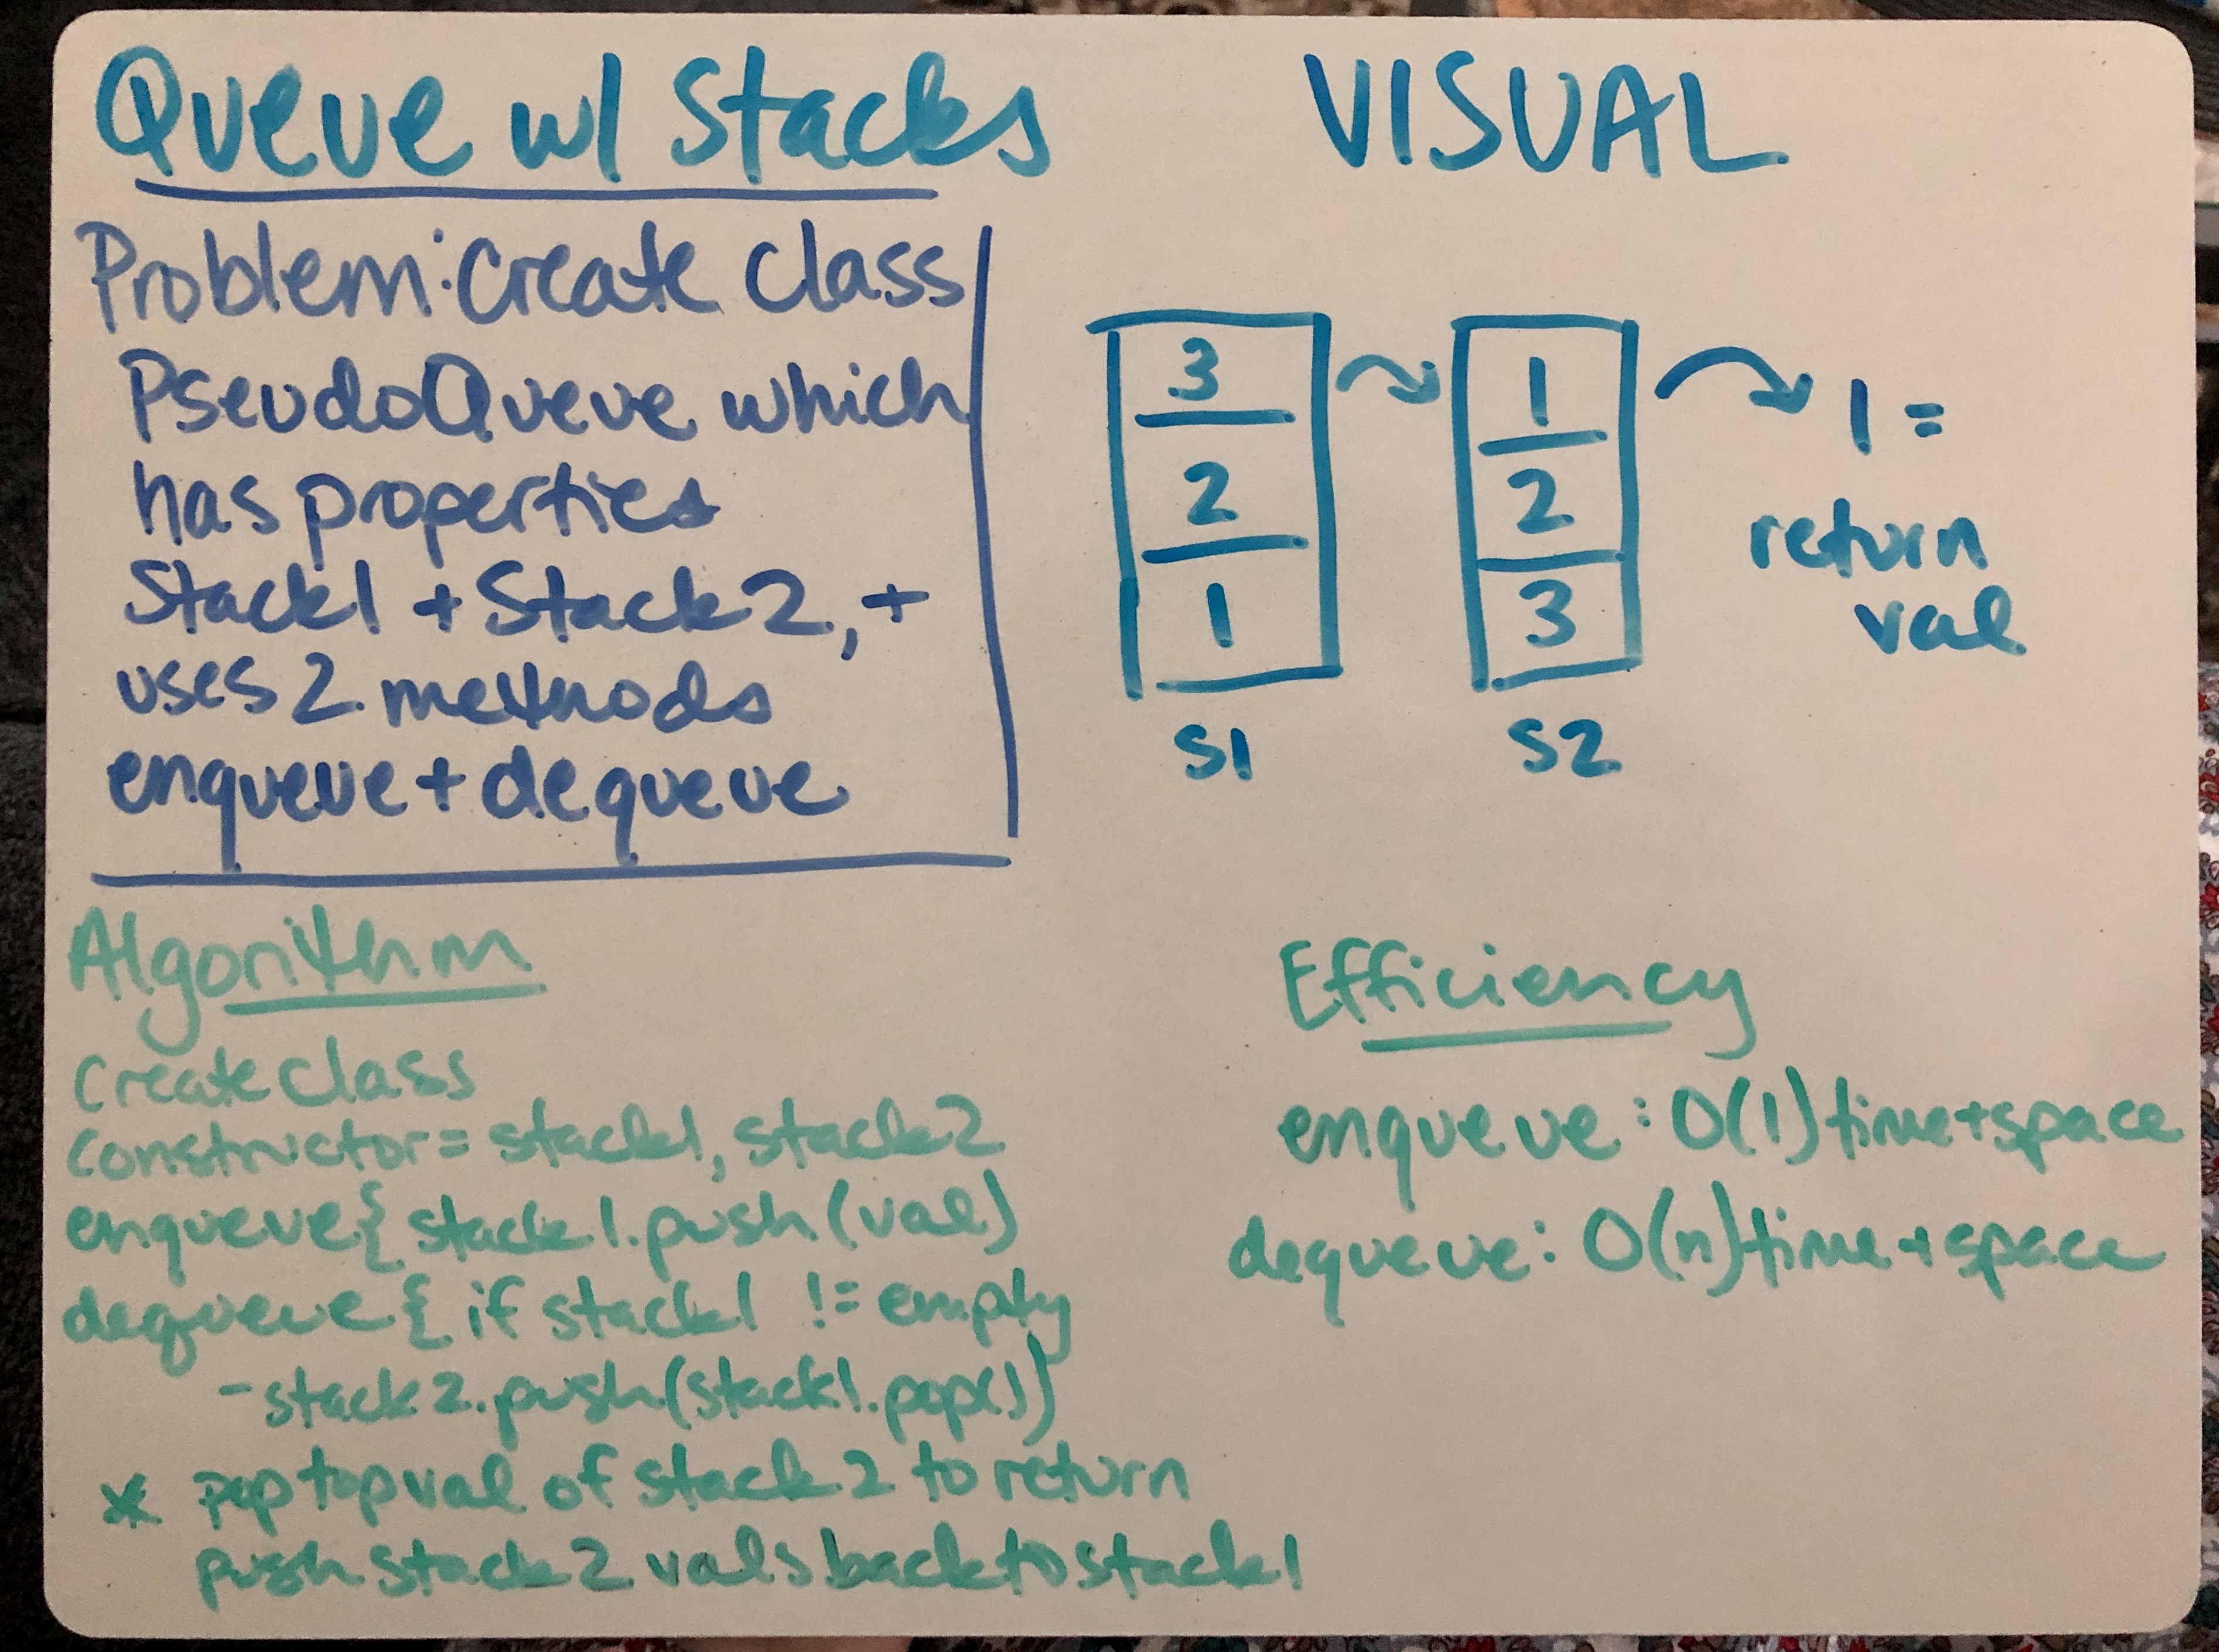 Queue w/ Stacks
Problem: Create class
PseudoQueue which
has properties
Stack1 + Stack2, +
uses 2 methods
enqueue + dequeue
VISUAL
3
2
1
S1
1
2
3
S2
1 =
return
val
Algorithm
Create class
constructor = stack1, stack2
enqueue{ stack1.push(val)
dequeue{ if stack1 != empty
- stack2.push(stack1.pop())
* pop top val of stack2 to return
push stack2 vals back to stack1
Efficiency
enqueue: O(1) time + space
dequeue: O(n) time + space